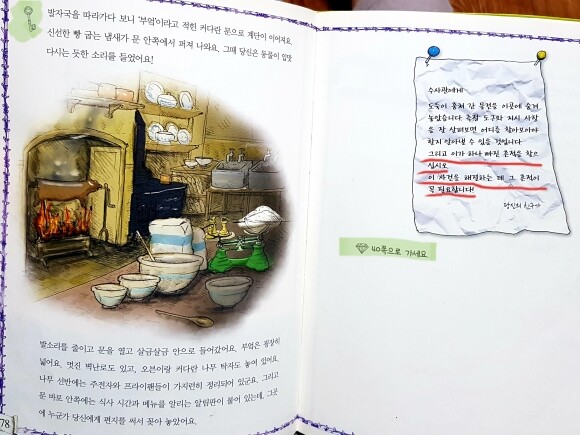 발자국을 따라가다 보니 '부엌'이라고 적힌 커다란 문으로 계단이 이어져요.
신선한 빵 굽는 냄새가 문 안쪽에서 퍼져 나와요. 그때 당신은 동물이 입맛
다시는 듯한 소리를 들었어요!
발소리를 줄이고 문을 열고 살금살금 안으로 들어갔어요. 부엌은 굉장히
넓어요. 멋진 벽난로도 있고, 오븐이랑 커다란 나무 탁자도 놓여 있어요.
나무 선반에는 주전자와 프라이팬들이 가지런히 정리되어 있군요. 그리고
문 바로 안쪽에는 식사 시간과 메뉴를 알리는 알림판이 붙어 있는데, 그곳
에 누군가 당신에게 편지를 써서 꽂아 놓았어요.
78
수사관에게
도둑이 훔쳐 간 물건을 이곳에 숨겨
놓았습니다. 측정 도구와 지시 사항
을 잘 살펴보면 어디를 찾아보아야
할지 알아낼 수 있을 것입니다.
그리고 이가 하나 빠진 흔적을 찾으
십시오.
이 사건을 해결하는 데 그 흔적이
꼭 필요합니다!
당신의 친구가
40쪽으로 가세요